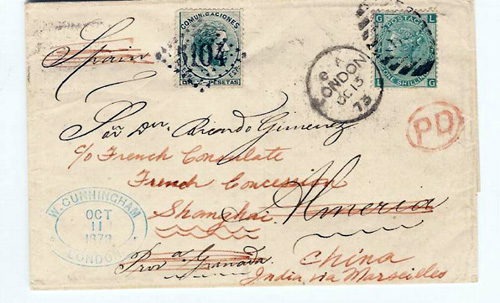 COMUNICACIONES
PESETAS
5104
G L
POSTAGE
ONE SHILLING
G
Spain
LONDON
OC 15
73
Sor Dn Ricardo Gimenez
PD
c/o French Consulate
French Concession
Shanghai Almeria
W. CUNNINGHAM
OCT
11
1873
LONDON
Prov a. Granada
China
India via Marseilles